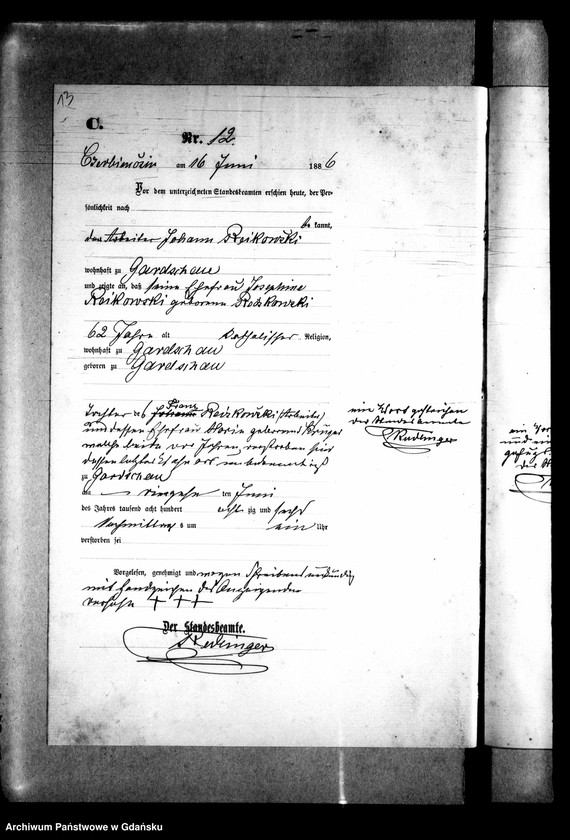 13
C.
Nr. 12.
Czerbienczin am 16 Juni 1886
Vor dem unterzeichneten Standesbeamten erschien heute, der Per-
sönlichkeit nach
bekannt,
der Arbeiter Johann Reikowski
wohnhaft zu Gardschau
und zeigte an, daß seine Ehefrau Josephine
Reikowski geborene
62 Jahre alt katholischer Religion,
wohnhaft zu Gardschau
geboren zu Gardschau
Tochter des Johann Franz (Arbeiter)
und dessen Ehefrau Maria geborene Krüger
welche beide vor Jahren verstorben sind
dessen letzter
zu Gardschau
am ten Juni
des Jahres tausend acht hundert achtzig und sechs
Nachmittags um ein Uhr
verstorben sei
Vorgelesen, genehmigt und wegen Schreibensunkundig
mit Handzeichen des Anzeigenden
versehen +++
Der Standesbeamte.
Redinger
ein Wort gestrichen
der Standesbeamte
Redinger
ein Wort
und ein
Archiwum Państwowe w Gdańsku